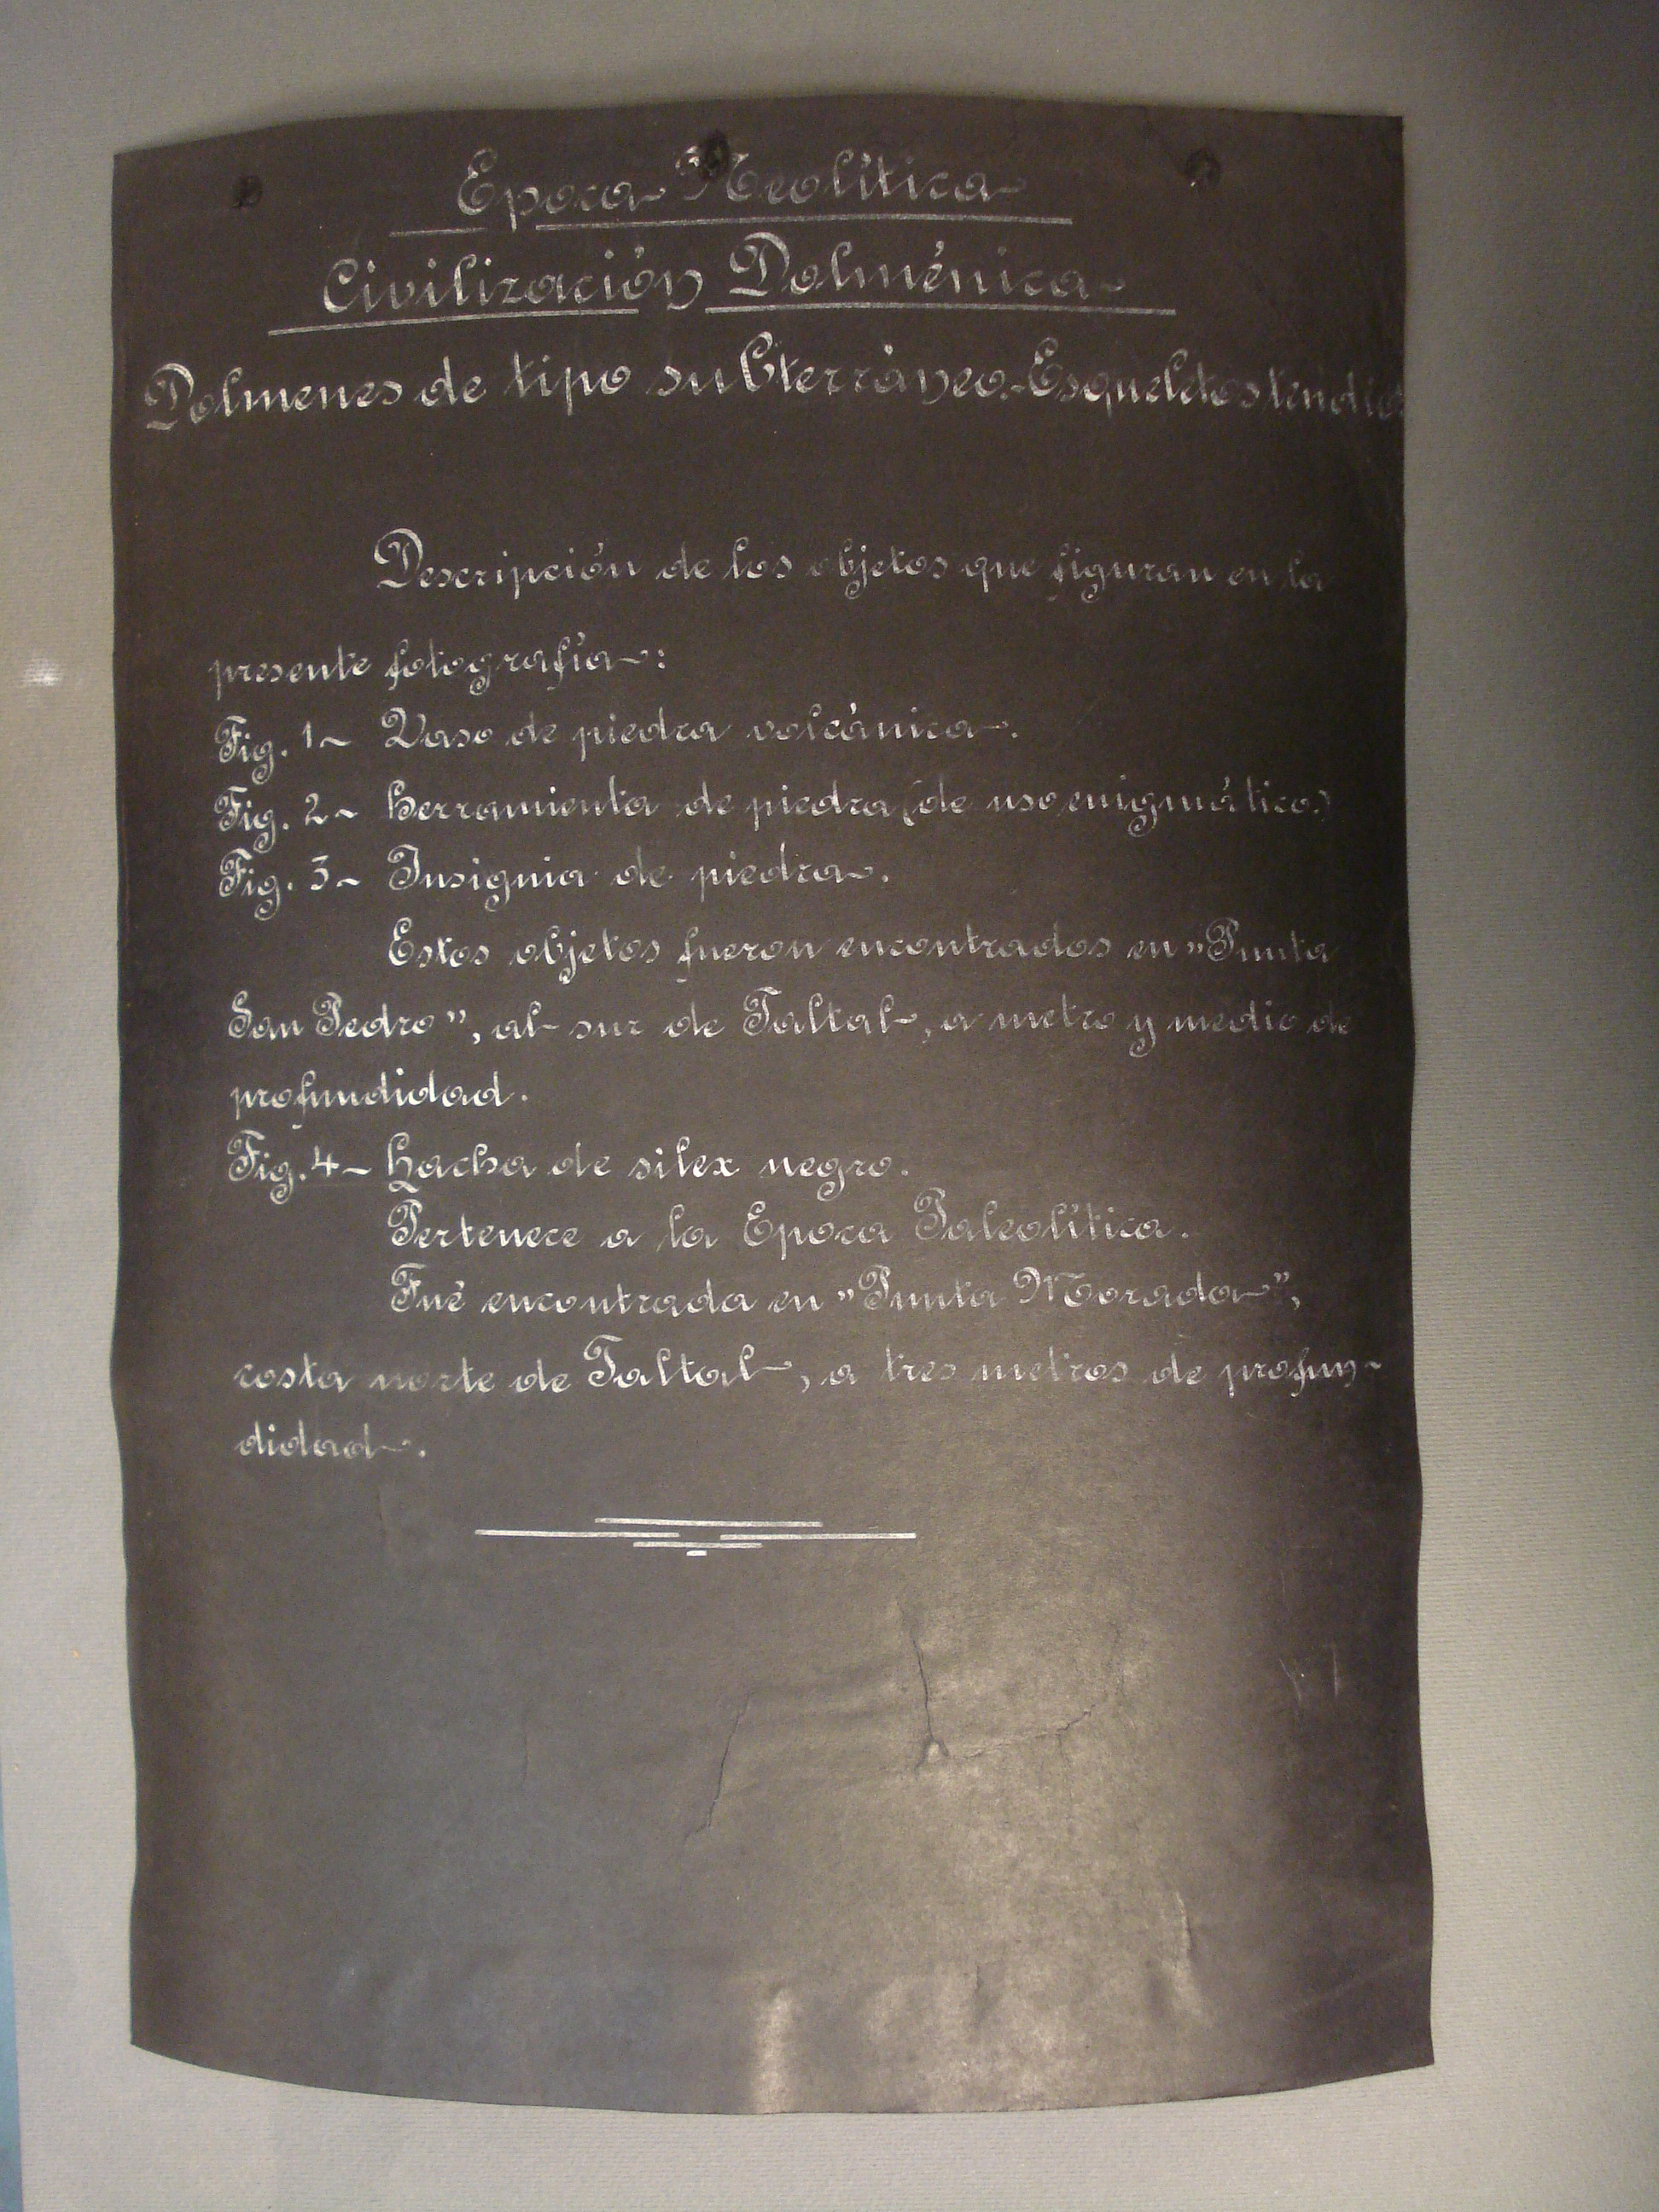 Epoca Neolítica
Civilización Dolménica
Dolmenes de tipo subterráneo.-Esqueletos tendidos
Descripción de los objetos que figuran en la
presente fotografía:
Fig. 1- Vaso de piedra volcánica.
Fig. 2- Herramienta de piedra (de uso enigmático)
Fig. 3- Insignia de piedra.
Estos objetos fueron encontrados en "Punta
San Pedro", al sur de Taltal, a metro y medio de
profundidad.
Fig. 4- Hacha de silex negro.
Pertenece a la Epoca Paleolítica.
Fué encontrada en "Punta Morada",
costa norte de Taltal, a tres metros de profun-
didad.